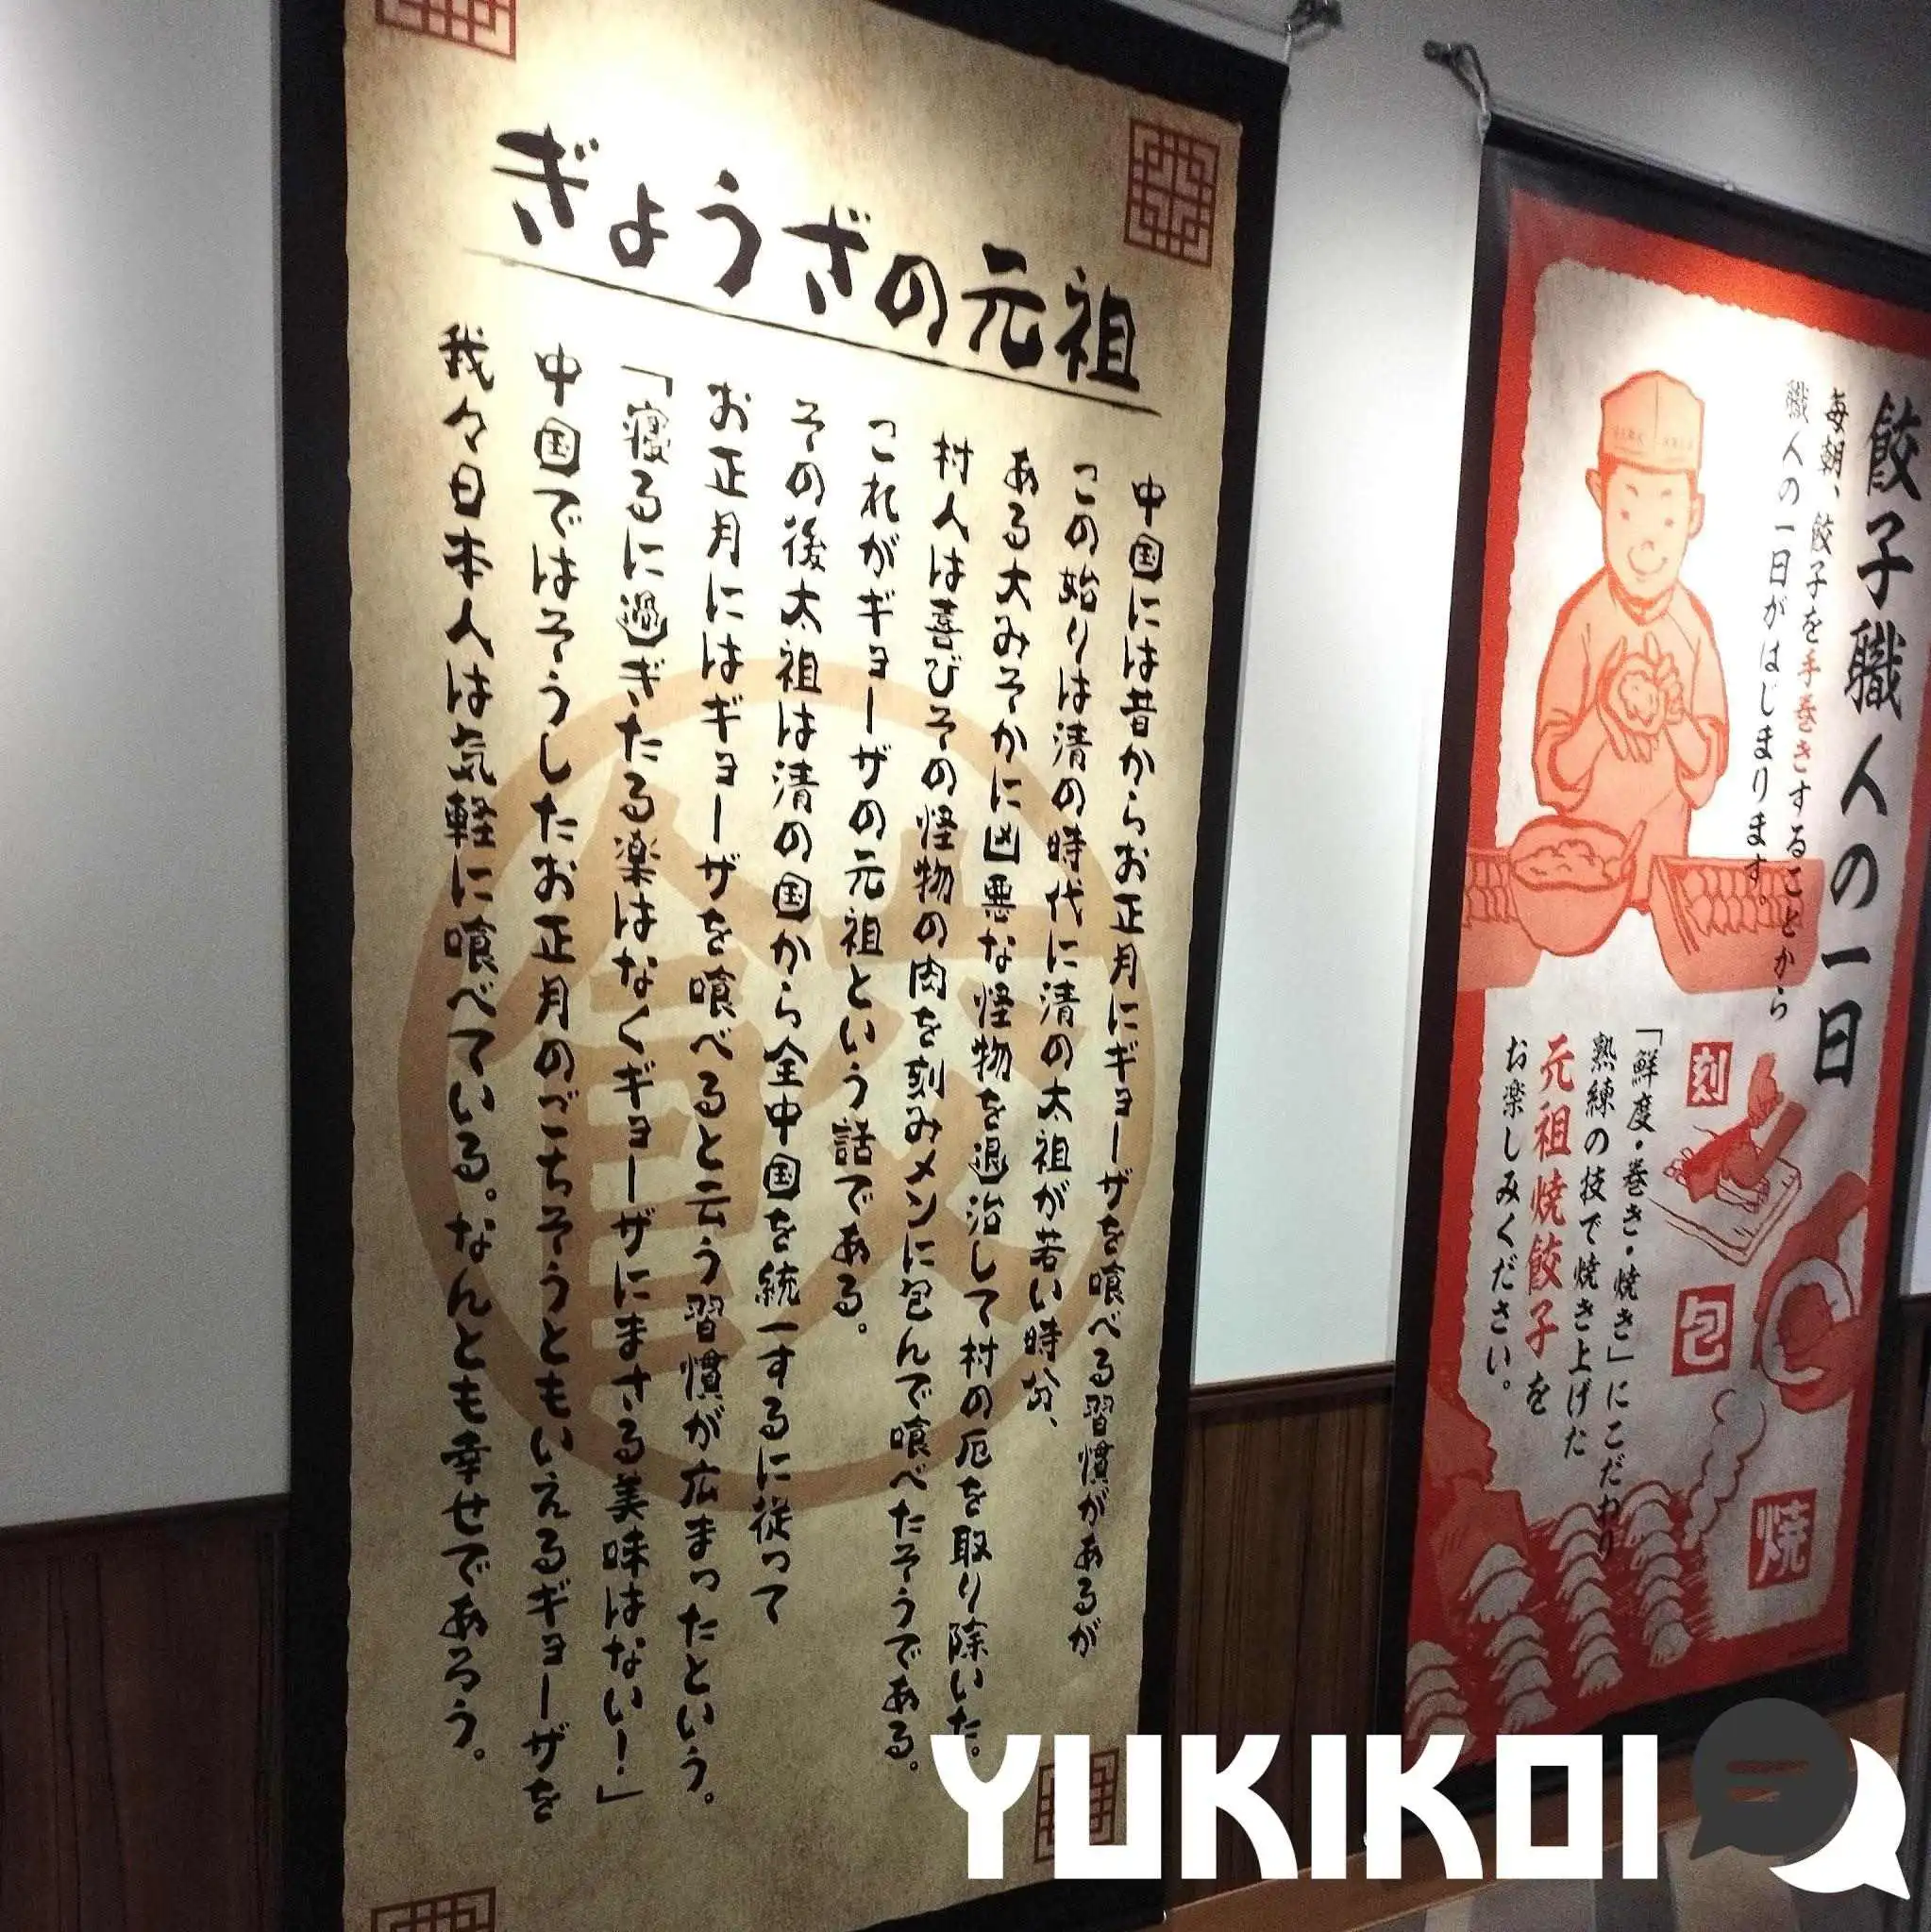 ぎょうざの元祖
中国には昔からお正月にギョーザを喰べる習慣があるが
この始りは清の時代に清の太祖が若い時分、
ある大みそかに凶悪な怪物を退治して村の厄を取り除いた。
村人は喜びその怪物の肉を刻みメンに包んで喰べたそうである。
これがギョーザの元祖という話である。
その後太祖は清の国から全中国を統一するに従って
お正月にはギョーザを喰べると云う習慣が広まったという。
「寝るに過ぎたる楽はなくギョーザにまさる美味はない！」
中国ではそうしたお正月のごちそうともいえるギョーザを
我々日本人は気軽に喰べている。なんとも幸せであろう。
餃子職人の一日
毎朝、餃子を手巻きすることから
職人の一日がはじまります。
刻
包
焼
「鮮度・巻き・焼き」にこだわり
熟練の技で焼き上げた
元祖焼餃子を
お楽しみください。
YUKIKOI